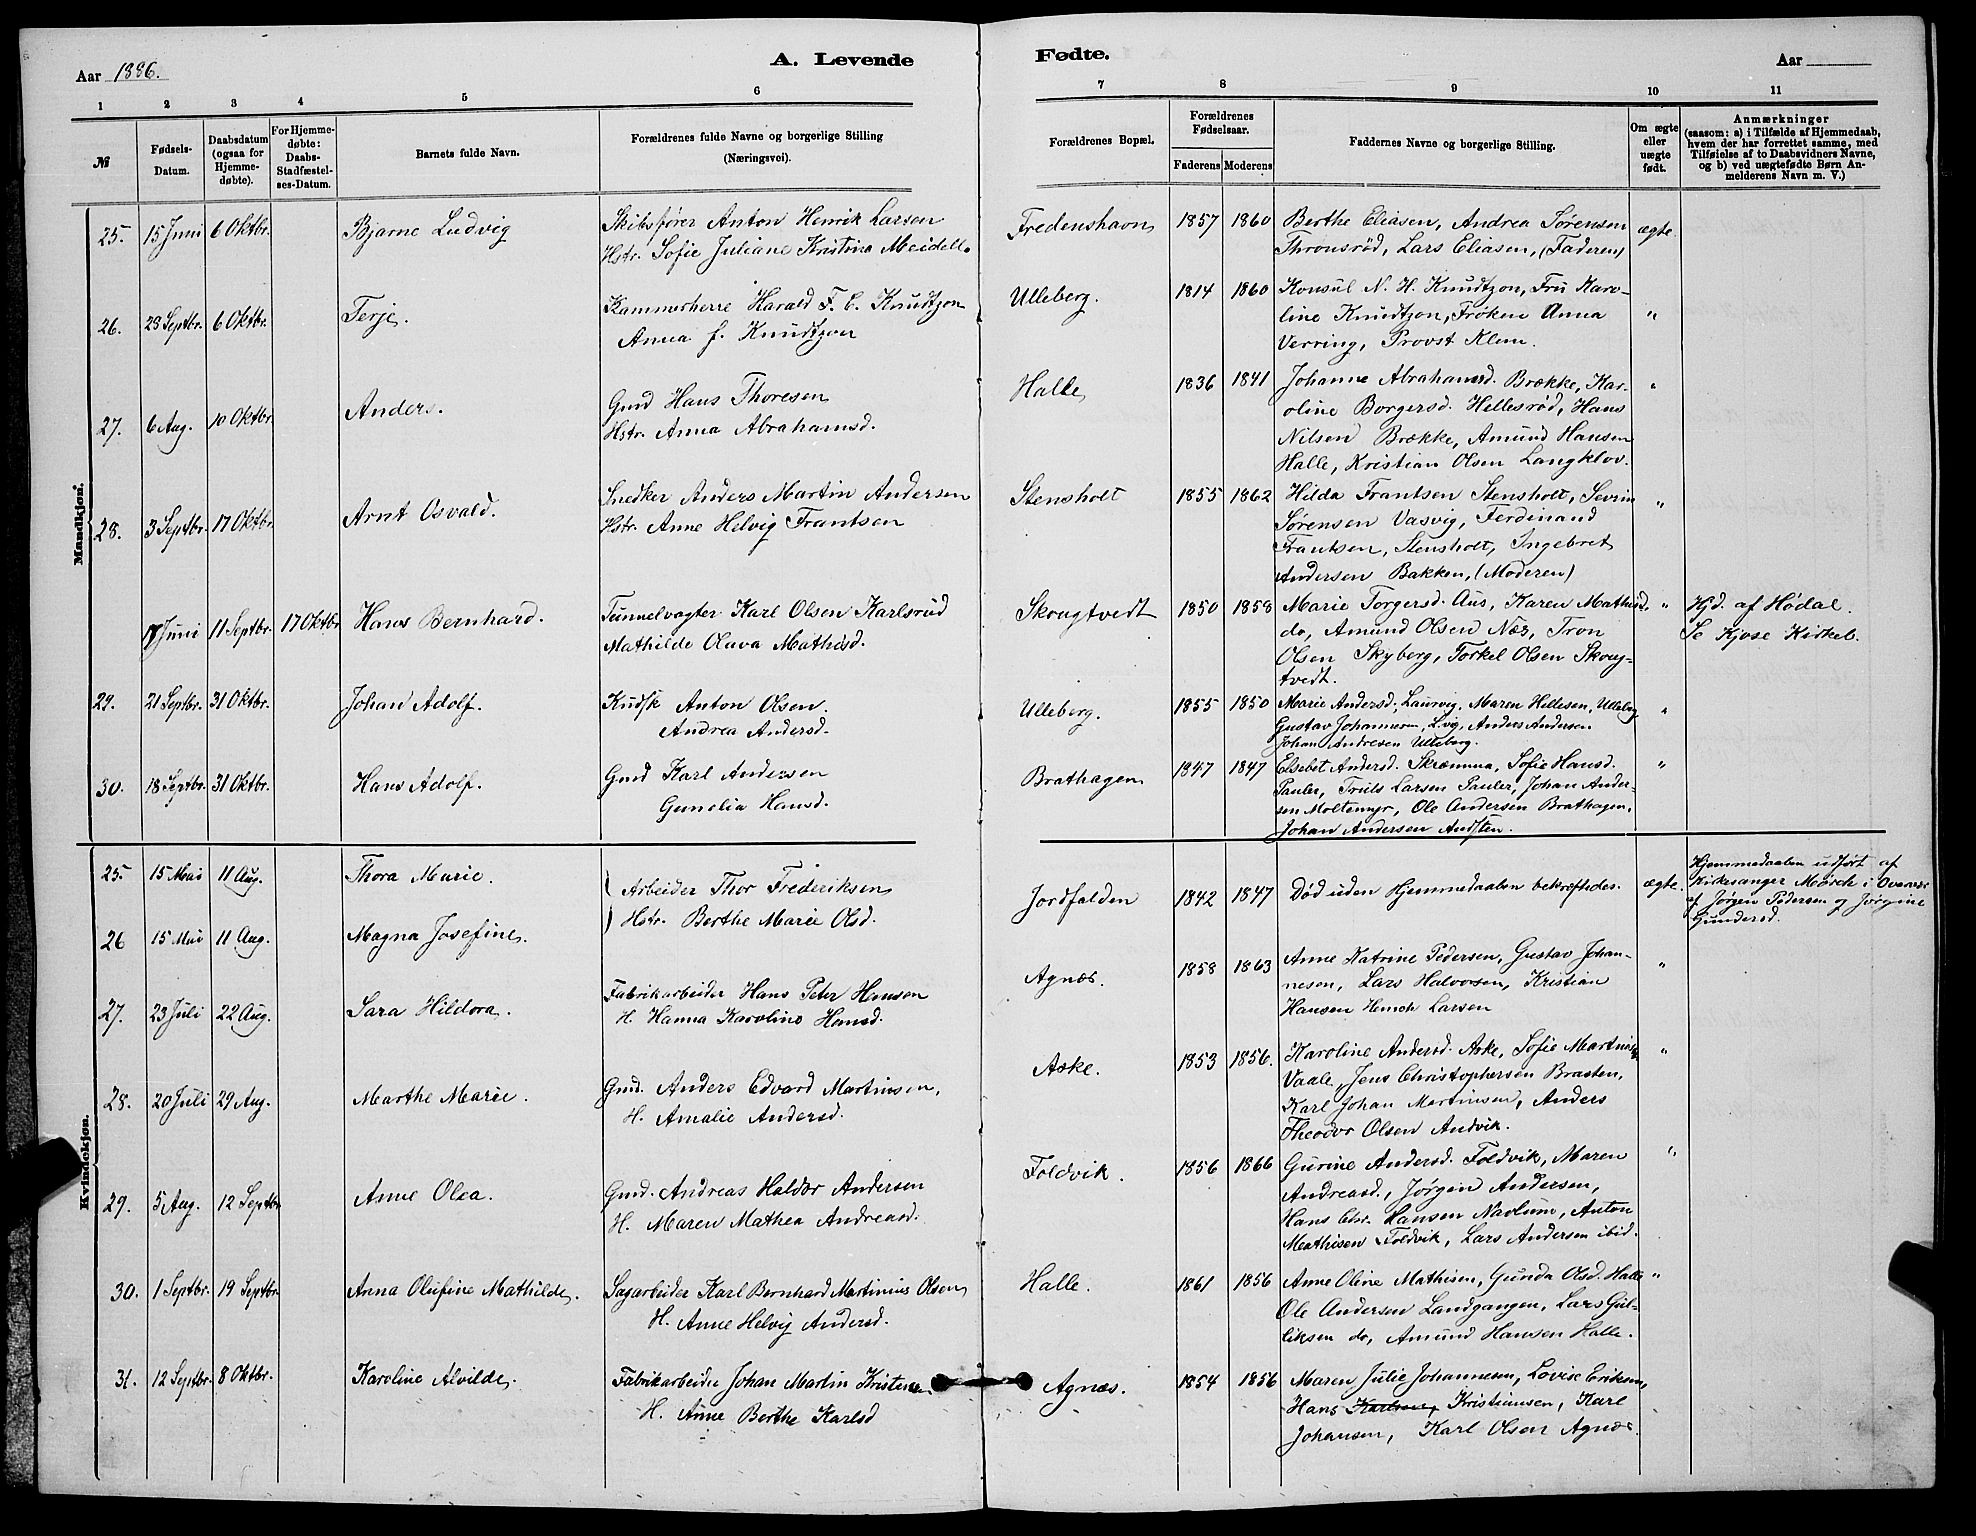 Aar 1886.
A. Levende
Fødte.
Aar
1 2 3 4 5 6 7 8 9 10 11
№
Fødsels-
Datum.
Daabsdatum
(ogsaa for
Hjemme-
døbte).
For Hjemme-
døbte:
Daabs-
Stadfæstel-
ses-Datum.
Barnets fulde Navn.
Forældrenes fulde Navne og borgerlige Stilling
(Næringsvei).
Forældrenes Bopæl.
Forældrenes
Fødselsaar.
Faderens Moderens
Faddernes Navne og borgerlige Stilling.
Om ægte
eller
uægte
født.
Anmærkninger
(saasom: a) i Tilfælde af Hjemmedaab,
hvem der har forrettet samme, med
Tilføielse af to Daabsvidners Navne,
og b) ved uægtefødte Børn An-
melderens Navn m. V.)
Mandkjøn.
25. 15 Juni 6 Oktbr. Bjarne Ludvig
Skibsfører Anton Henrik Larsen
Hstr. Sofie Juliane Kristina Meidell.
Fredenshavn 1857 1860
Berthe Eliasen, Andrea Sørensen
Thronsrød, Lars Eliasen, (Faderen)
ægte.
26. 23 Septbr. 6 Oktbr. Terje.
Kammerherre Harald F. C. Knudtzon
Anna f. Knudtzon
Ulleberg. 1814 1860
Konsul N. H. Knudtzon, Fru Karo-
line Knudtzon, Frøken Anna
Verring, Provst Klem.
"
27. 6 Aug. 10 Oktbr. Anders.
Gmd Hans Thoresen
Hstr. Anna Abrahamsd.
Halle 1836 1841
Johanne Abrahamsd. Brække, Kar-
oline Borgersd. Hellesrød, Hans
Nilsen Brække, Amund Hansen
Halle, Kristian Olsen Langklov.
"
28. 3 Septbr. 17 Oktbr. Arnt Osvald.
Snedker Anders Martin Andersen
Hstr. Anne Helvig Frantsen
Stensholt 1855 1862
Hilda Frantsen Stensholt, Sevrin
Sørensen Vasvig, Ferdinand
Frantsen, Stensholt, Ingebret
Andersen Bakken, (Moderen)
"
Juni 11 Septbr. 17 Oktbr Hans Bernhard.
Tunnelvagter Karl Olsen Karlsrud
Mathilde Olava Mathisd.
Skougtvedt 1850 1858
Marie Torgersd. Aus, Karen Mathisd.
do, Amund Olsen Næs, Tron
Olsen Skyberg, Torkel Olsen Skoug-
tvedt.
"
Hjd. af Hødal.
Se Kjose Kirkeb.
29. 21 Septbr. 31 Oktbr. Johan Adolf.
Kudsk Anton Olsen.
Andrea Andersd.
Ulleberg. 1855 1850
Marie Andersd, Laurvig, Maren Hillesen, Ulleberg
Gustav Johannesen, L.vig, Anders Andersen
Johan Andresen Ulleberg.
"
30. 18 Septbr. 31 Oktbr. Hans Adolf.
Gmd Karl Andersen
Gunelia Hansd.
Brathagen 1847 1847
Elsebet Andersd. Skræmma, Sofie Hansd.
Pauler, Truls Larsen Pauler, Johan Ander-
sen Moltemyr, Ole Andersen Brathagen,
Johan Andersen Andsten.
"
Kvindekjøn.
25. 15 Mai 11 Aug. Thora Marie.
Arbeider Thor Frederiksen
Hstr. Berthe Marie Olsd.
Jordfalden 1842 1847
Død uden Hjemmedaaben bekræftedes.
ægte.
Hjemmedaaben udført af
Kirkesanger Mørch i Overvær
af Jørgen Pedersen og Jørgine
Gundersd.
26 15 Mai 11 Aug. Magna Josefine.
27. 23 Juli 22 Aug. Sara Hildora.
Fabrikarbeider Hans Peter Hansen
H. Hanna Karoline Hansd.
Agnæs. 1858 1863
Anne Katrine Pedersen, Gustav Johan-
nesen, Lars Halvorsen, Kristian
Hansen Larsen
"
28. 20 Juli 29 Aug. Marthe Marie.
Gmd. Anders Edvard Martinsen,
H. Amalie Andersd.
Aske. 1853 1856.
Karoline Andersd. Aske, Sofie Martinsd.
Vaale, Jens Christophersen Brasten,
Karl Johan Martinsen, Anders
Theodor Olsen Andvik.
"
29. 5 Aug. 12 Septbr Anne Olea.
Gmd. Andreas Haldor Andersen
H. Maren Mathea Andreasd.
Foldvik. 1856 1866
Gurine Andersd. Foldvik, Maren
Andreasd., Jørgen Andersen,
Hans Chr. Hansen Navlum, Anton
Mathisen Foldvik, Lars Andersen ibid.
"
30. 1 Septbr. 19 Septbr Anna Olufine Mathilde.
Sagarbeider Karl Bernhard Martinius Olsen
H. Anne Helvig Andersd.
Halle. 1861 1856
Anne Oline Mathisen, Gunda Olsd. Halle
Ole Andersen Landgangen, Lars Gul-
liksen do, Amund Hansen Halle.
"
31. 12 Septbr. 8 Oktbr. Karoline Alvilde.
Fabrikarbeider Johan Martin Kristens.
H. Anne Berthe Karlsd
Agnæs. 1854 1856
Maren Julie Johannesen, Lovise Eriksen,
Hans Karlsen, Kristiansen, Karl
Johansen, Karl Olsen Agnæs.